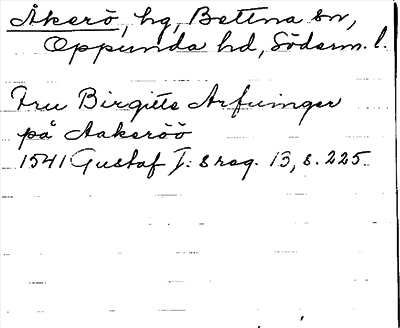 Åkerö, hg, Bettna sn,
Oppunda hd, Söderm. l.
Fru Birgitte Arfuinger
på Aakeröö
1541 Gustaf I:s reg. 13, s. 225.